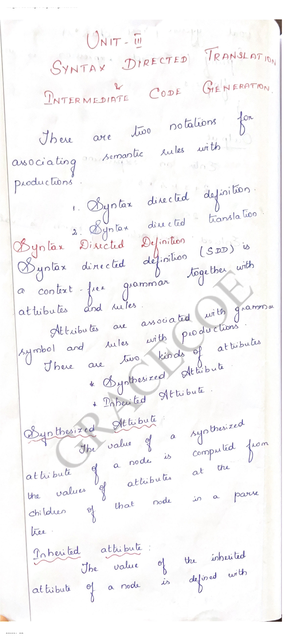 UNIT - III
SYNTAX DIRECTED TRANSLATION
&
INTERMEDIATE CODE GENERATION
There are two notations for
associating semantic rules with
productions.
1. Syntax directed definition.
2. Syntax directed translation
Syntax Directed Definition
Syntax directed definition (SDD) is
a context-free grammar together with
attributes and rules.
Attributes are associated with grammar
symbol and rules with productions.
There are two kinds of attributes
* Synthesized Attribute
* Inherited Attribute.
GRACECOE
Synthesized Attribute:
The value of a synthesized
attribute of a node is computed from
the values of attributes at the
children of that node in a parse
tree.
Inherited attribute:
The value of the inherited
attribute of a node is defined with